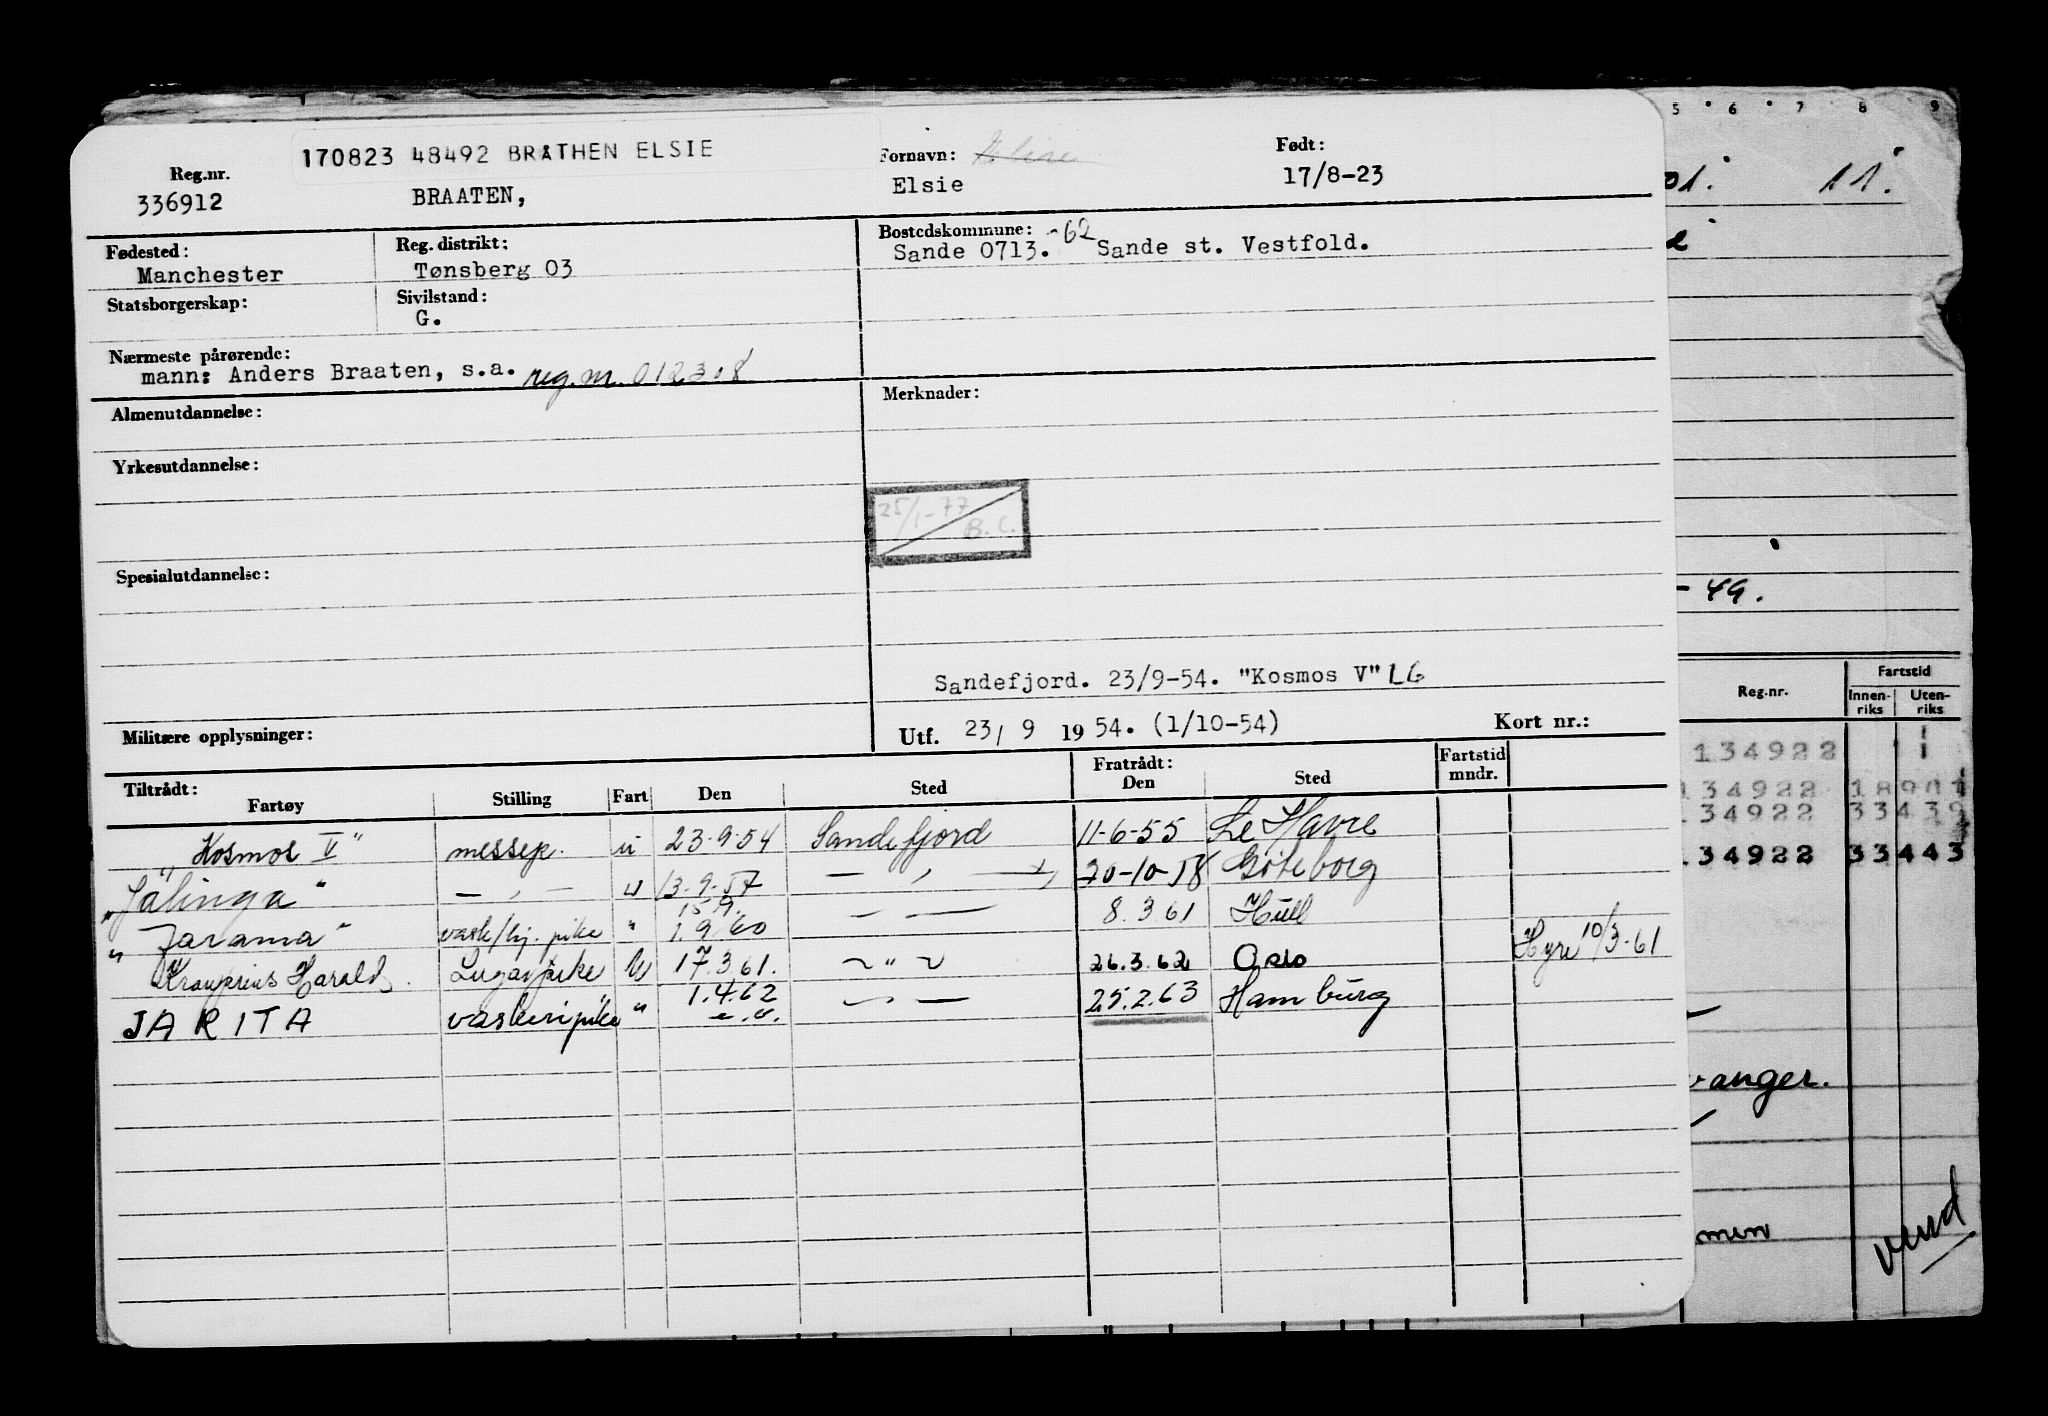 170823 48492 BRÅTHEN ELSIE
Reg.nr. 336912
BRAATEN,
Fornavn:
Elsie
Født:
17/8-23
Fødested:
Manchester
Reg. distrikt:
Tønsberg 03
Bostedskommune: -62
Sande 0713. Sande st. Vestfold.
Statsborgerskap:
Sivilstand:
G.
Nærmeste pårørende:
mann: Anders Braaten, s.a. reg.nr. 012308
Almenutdannelse:
Merknader:
Yrkesutdannelse:
25/1-77
B.C.
Spesialutdannelse:
Sandefjord. 23/9-54. "Kosmos V" LG
Militære opplysninger:
Utf. 23/ 9 19 54. (1/10-54)
Kort nr.:
Tiltrådt:
Fartøy Stilling Fart Den Sted Fratrådt: Den Sted Fartstid mndr.
"Kosmos V" messep. u 23-9-54 Sandefjord 11-6-55 Le Havre
"Jalinga" — , — u 13-9-57 — , — 20-10-58 Göteborg
15.9.
"Jarama" vask/hj. pike " 1.9.60 — — 8.3.61 Hull
Kronprins Harald. Lugarpike U 17.3.61. — " — 26.3.62 Oslo Hyre 10/3-61
JARITA vaskeripike " 1.4.62 — . — 25.2.63 Hamburg
5 6 7 8 9
11.
- 49.
Reg.nr.
Fartstid
Innen-riks Uten-riks
134922 1
134922
134922 33439
134922 33443
anger.
men
vend